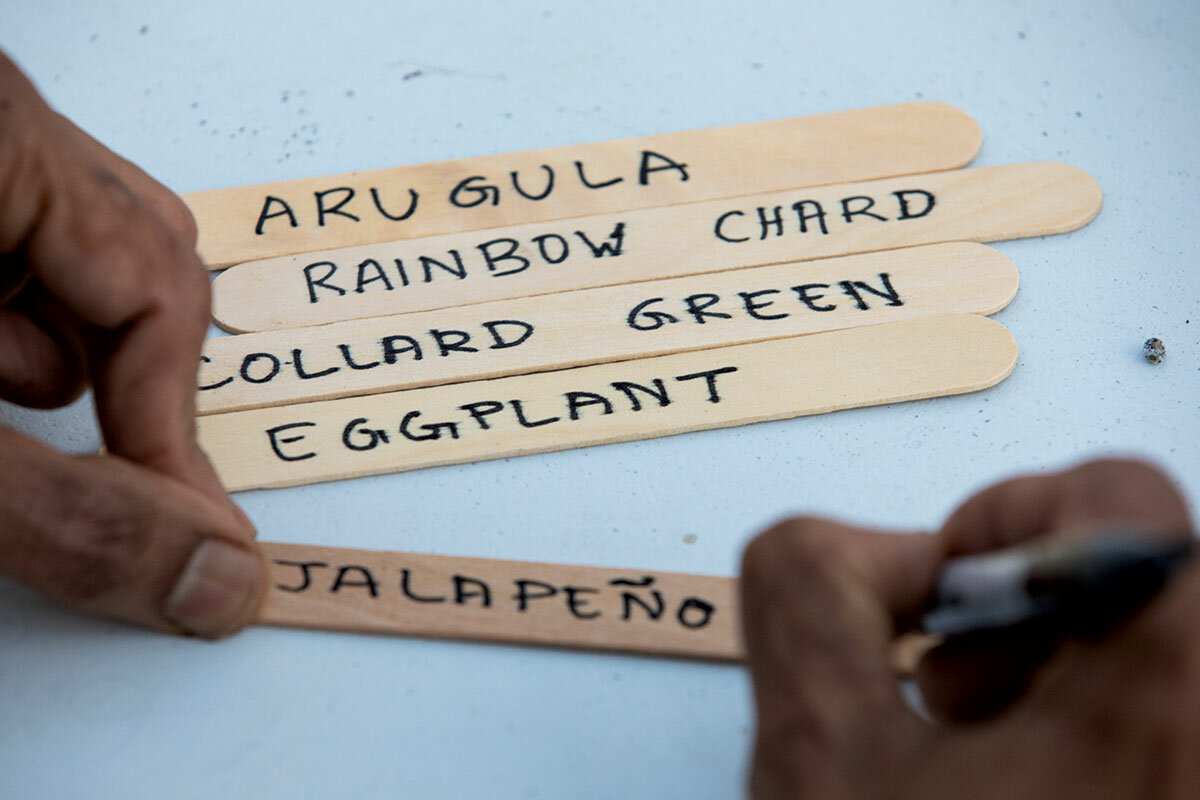 ARUGULA
RAINBOW CHARD
COLLARD GREEN
EGGPLANT
JALAPEÑO